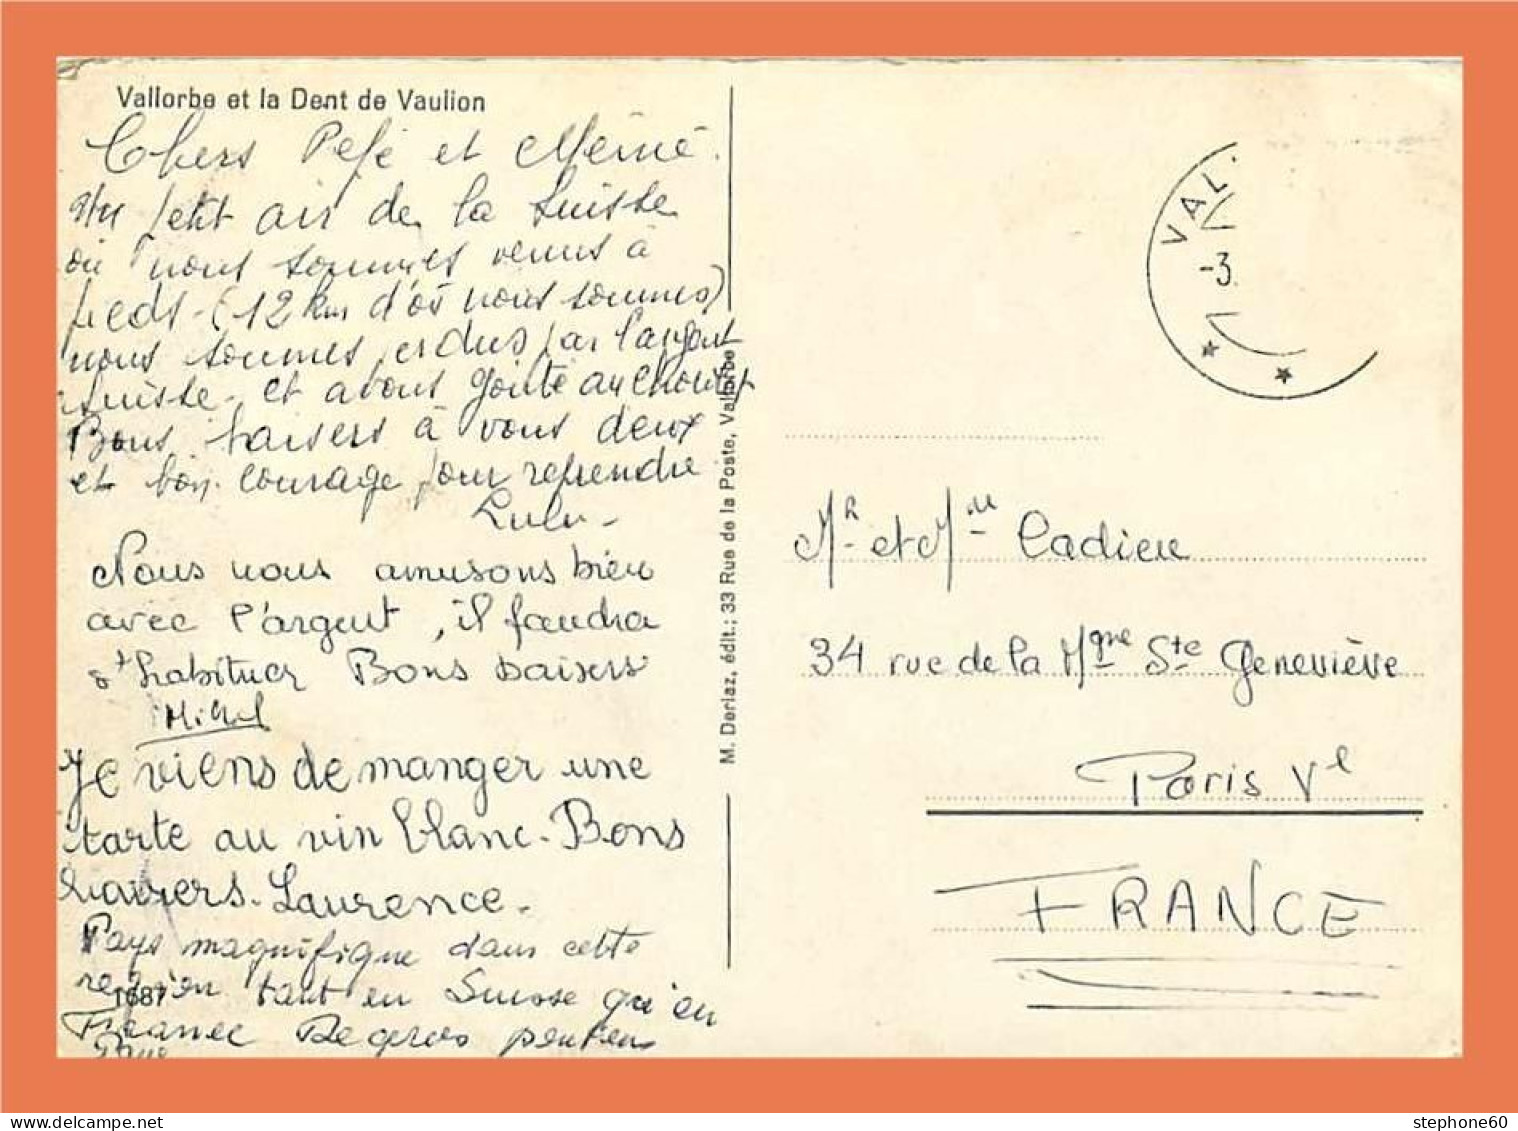 Vallorbe et la Dent de Vaulion
Chers Pépé et Mémé.
Un petit air de la Suisse
où nous sommes venus à
pieds - (12 km d'où nous sommes)
nous sommes perdus par l'argent
suisse - et avons goûté au chocolat
Bons baisers à vous deux
et bon courage pour reprendre
Lulu -
Nous nous amusons bien
avec l'argent, il faudra
s'habituer Bons baisers
Michel
Je viens de manger une
tarte au vin blanc. Bons
baisers. Laurence.
Pays magnifique dans cette
region tant en Suisse qu'en
1687
France
M. Deriaz, édit.; 33 Rue de la Poste, Vallorbe
VAL
-3.
Mr et Mme Cadieu
34 rue de la Mgne Ste Geneviève
Paris Ve
FRANCE
stephone60